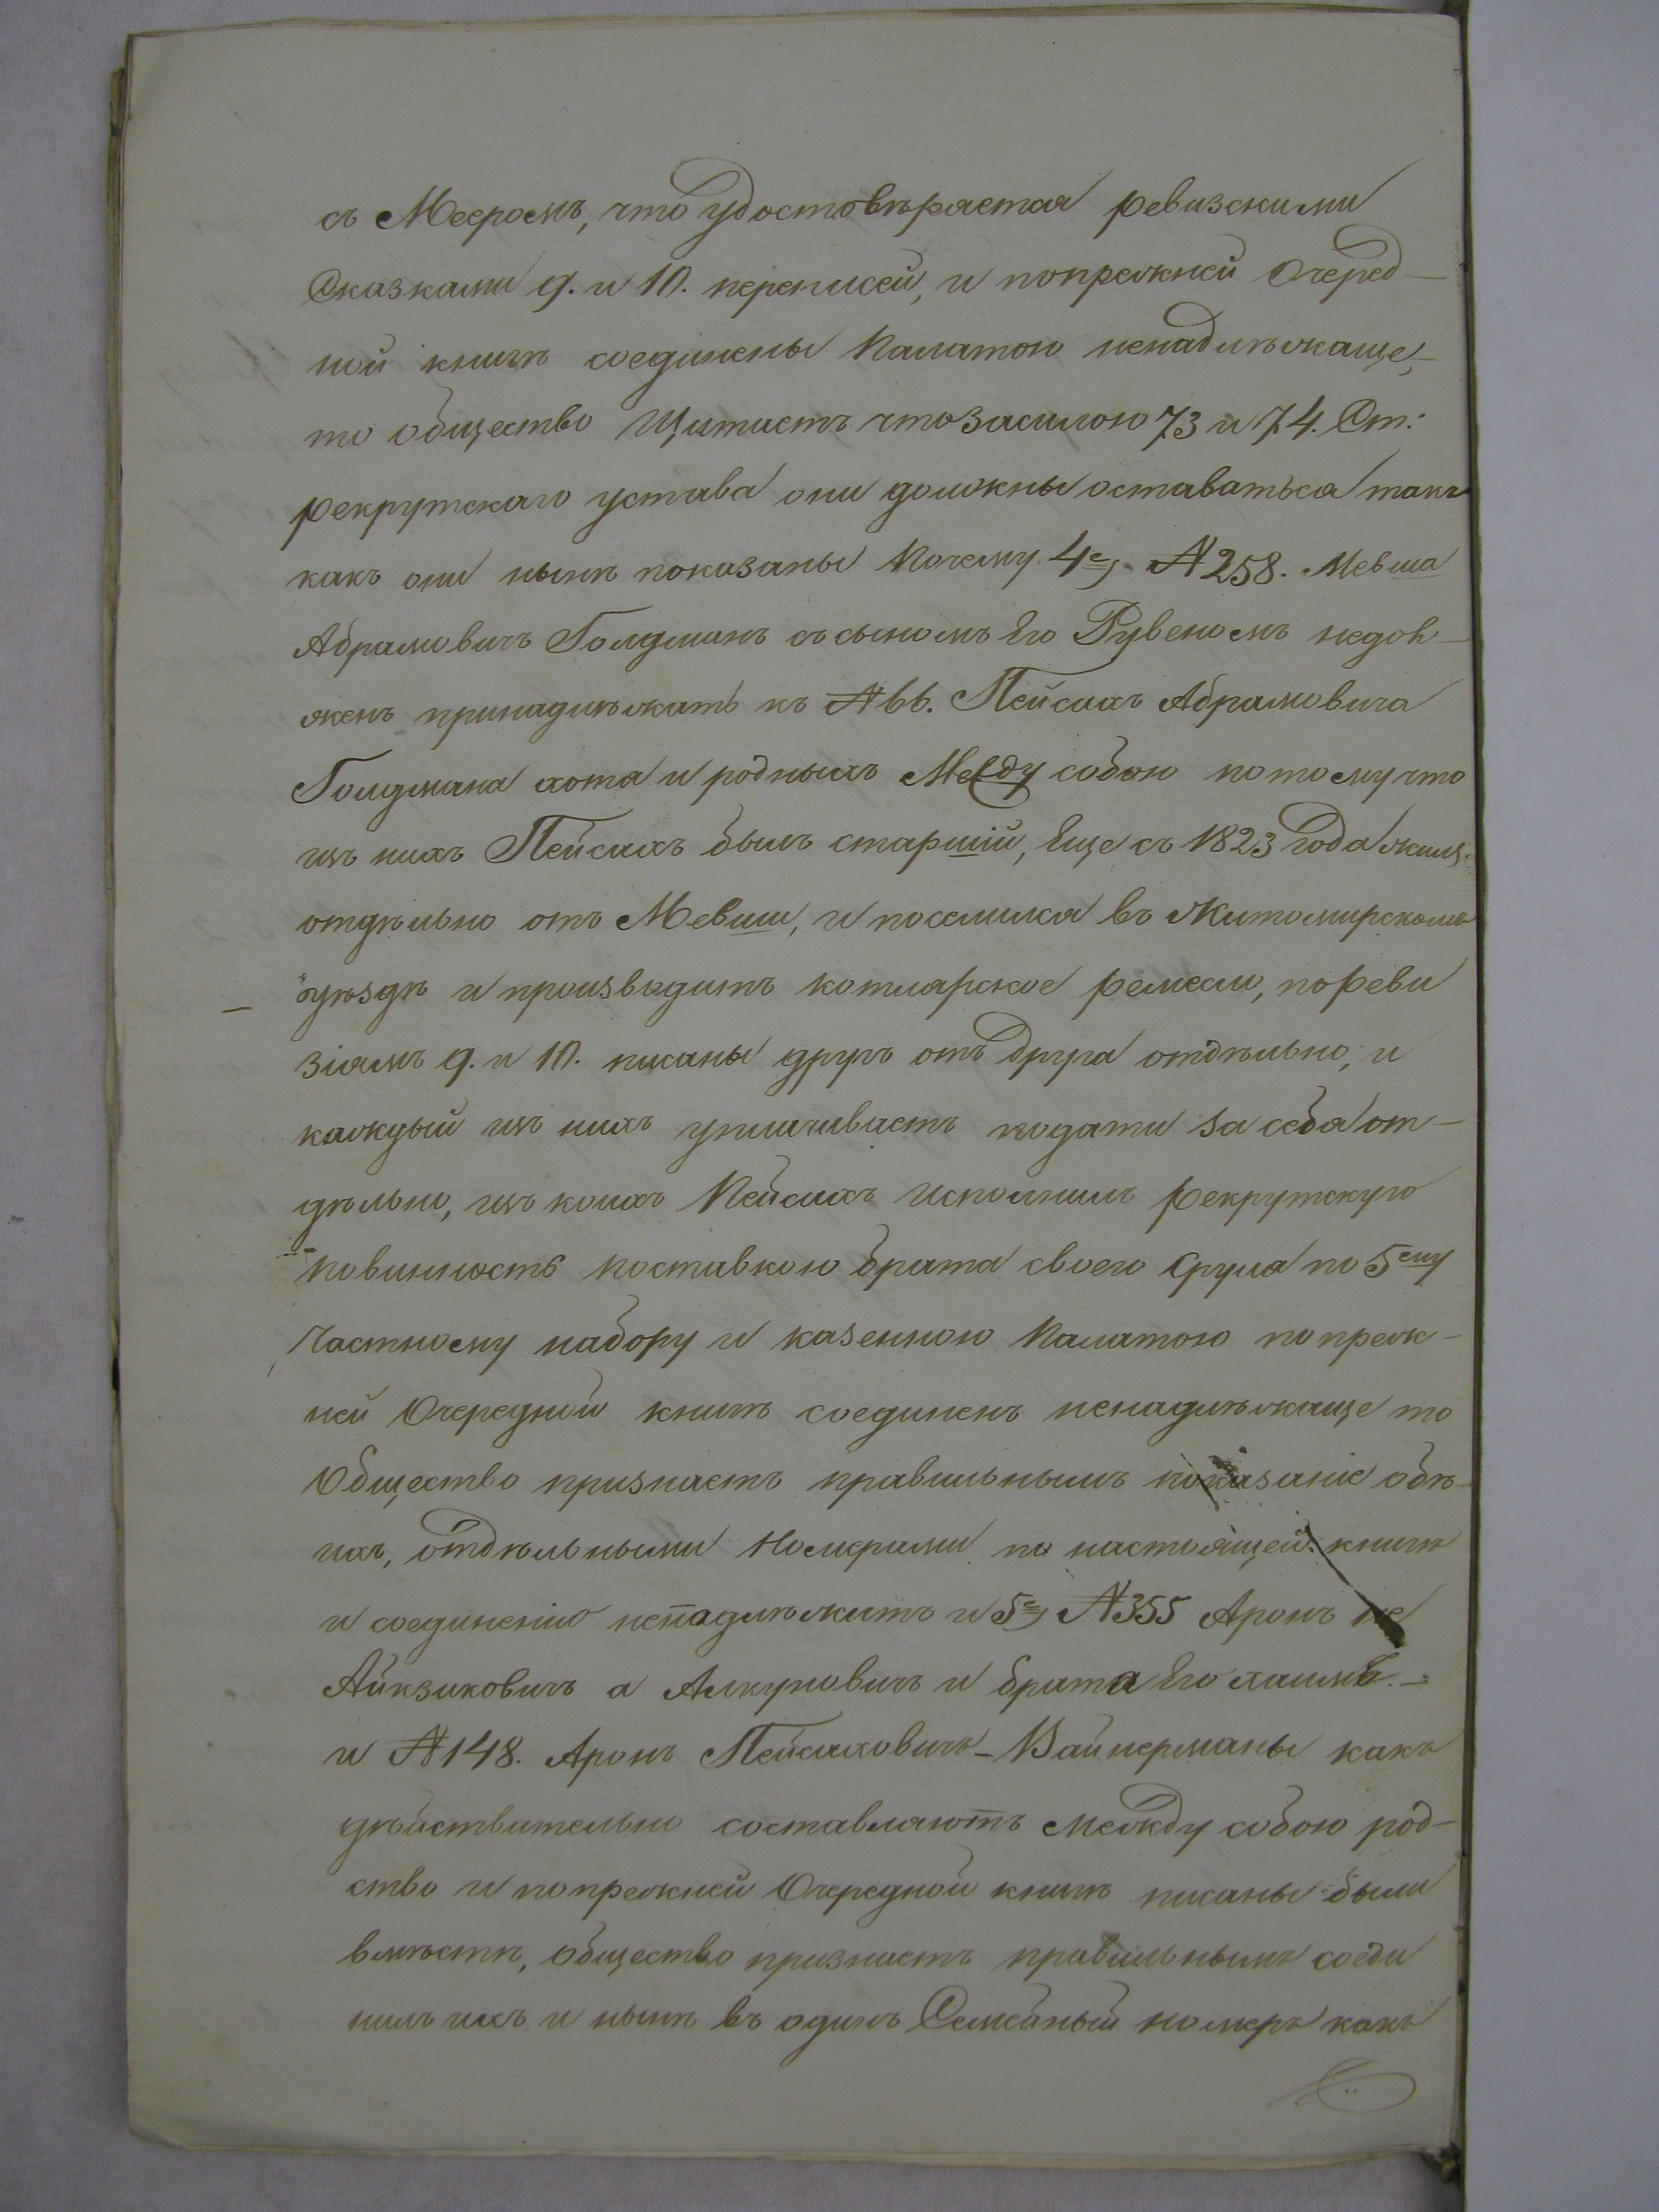 съ Мееромъ, что удостовѣряется ревизскими
Сказками 9. и 10. переписей, и попрежней Очеред-
ной книгѣ соединены Палатою ненадлѣжаще,
то общество Щитаетъ что засилою 73 и 74. Ст:
рекрутскаго устава они должны оставаться такъ
какъ они нынѣ показаны Почему 4е, № 258. Мевша
Абрамовичъ Голдманъ съ сыномъ Его Рувеномъ недол-
женъ принадлѣжать къ № 66. Пейсахъ Абрамовича
Голдмана хотя и родныхъ Между собою потому что
изъ нихъ Пейсахъ былъ старшій, Еще съ 1823 года жилъ
отдѣльно отъ Мевши, и поселился въ Житомирскомъ
уѣздѣ и производитъ котлярское ремесло, по Реви
зіямъ 9. и 10. писаны другъ отъ друга отдѣльно, и
каждый изъ нихъ уплачиваетъ подати за себя от-
дѣльно, изъ коихъ Пейсахъ исполнилъ рекрутскую
повинность поставкою брата своего Сруля по 5ему
Частному набору и казенною Палатою по преж-
ней Очередной книгѣ соединенъ ненадлѣжаще то
Общество признаетъ правильнымъ показаніе обѣ-
ихъ, отдѣльными Номерами по настоящей книгѣ
и соединенію непадлѣжитъ и 5е, № 355 Аронъ не
Айзиковичъ а Алкуновичъ и брата Его хаимъ.-
и № 148. Аронъ Пейсаховичъ - Вайнерманы какъ
дѣйствительно составляютъ между собою род-
ство и попрежней Очередной книгѣ писаны были
вмѣстѣ, общество признаетъ правильнымъ соеди
нилъ ихъ и нынѣ въ одинъ Семейный номеръ какъ